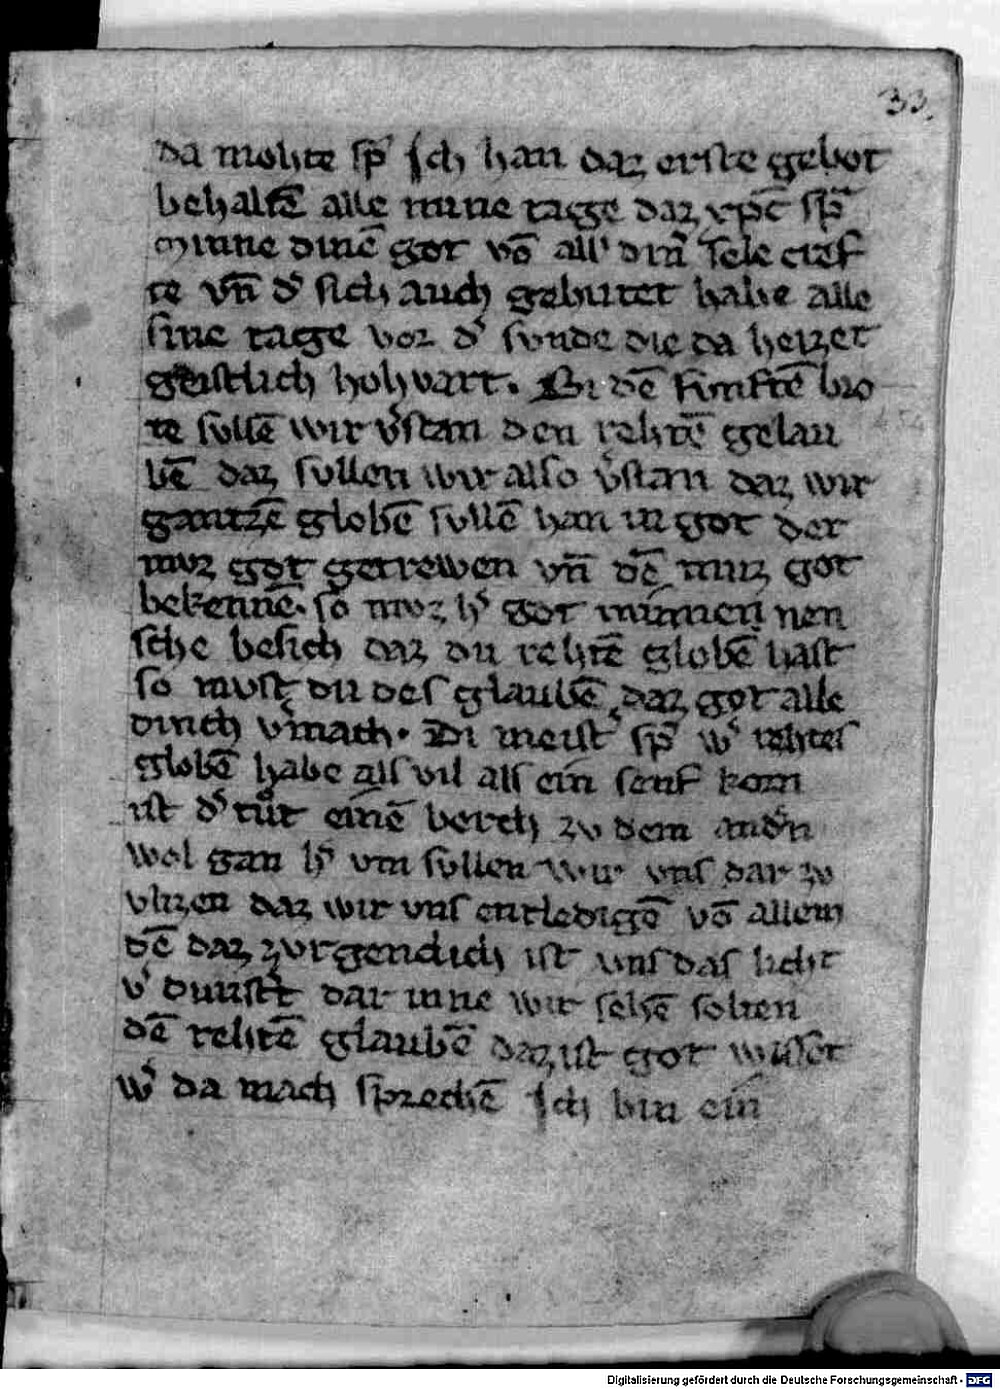 33.
da mohte sp̄ ſch han daz erſte gebot
behalt̄e alle mine tagge daz xpc̄ ſp̄
Minne dinē got vō all' din̄ ſele cref
te vn̄ d' ſich auch gehutet habe alle
ſine tage vor d' ſunde die da heizet
geiſtlich hohvart. Bi dē funftē bro
te ſullē wir v'ſtan den rehtē gelau
bē daz ſullen wir alſo v'ſtan daz wir
gantzē globē ſullē han in got der
muz got getrewen vn̄ dē muz got
bekennē. ſo muz h' got minnen nen
ſche beſich daz du rehtē globē haſt
ſo muſt du des glaubē daz got alle
dinch v'mach. Di meiſt' ſp̄ w' rehtes
globē habe als vil als ein ſenf korn
iſt d' tůt einē berch zv dem and'n
wol gan h' vm ſullen wir vns dar zv
vlizen daz wir vns entledigē vō allem
dē daz zvrgenclich iſt vns das licht
v' dunſt't dar inne wir ſehē ſolten
dē rehtē glaubē daz iſt got wiſſet
w' da mach ſprechē ſch bin ein
Digitalisierung gefördert durch die Deutsche Forschungsgemeinschaft - DFG